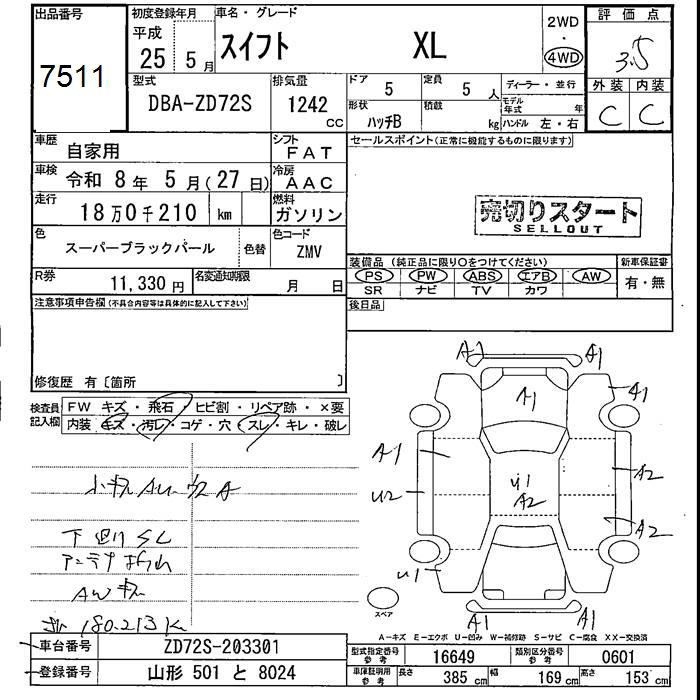 出品番号
7511
初度登録年月 車名・グレード
平成 25年 5月 スイフト XL
2WD
・
4WD
評価点
3.5
外装 内装
C C
型式 DBA-ZD72S
排気量 1242 CC
ドア 5 定員 5人 ディーラー・並行
形状 ハッチB 積載 kg モデル年式 年
ハンドル 左・右
車歴 自家用
シフト FAT
車検 令和 8年 5月(27日)
冷房 AAC
走行 18万0千210 km
燃料 ガソリン
色 スーパーブラックパール 色替
色コード ZMV
R券 11,330円 名変通知期限 月 日
セールスポイント(正常に機能するものに限ります)
売切りスタート
SELLOUT
装備品(純正品に限り○をつけてください) 新車保証書
PS PW ABS エアB AW 有・無
SR ナビ TV カワ
後日品
注意事項申告欄(不具合内容等は具体的に記入して下さい)
修復歴 有〔箇所 〕
検査員記入欄
FW キズ・飛石・ヒビ割・リペア跡・×要
内装 キズ・汚レ・コゲ・穴・スレ・キレ・破レ
小キズ AU
下廻り SC
AWキズ
180.213K
A1
A1
A1
A1
A1
U1
A2
A2
U2
A2
U1
A1
A1
スペア
A-キズ E-エクボ U-凹み W-補修跡 S-サビ C-腐食 XX-交換済
車台番号 ZD72S-203301
登録番号 山形 501 と 8024
型式指定番号 参考 16649 類別区分番号 参考 0601
車庫証明用 参考 長さ 385cm 幅 169cm 高さ 153cm